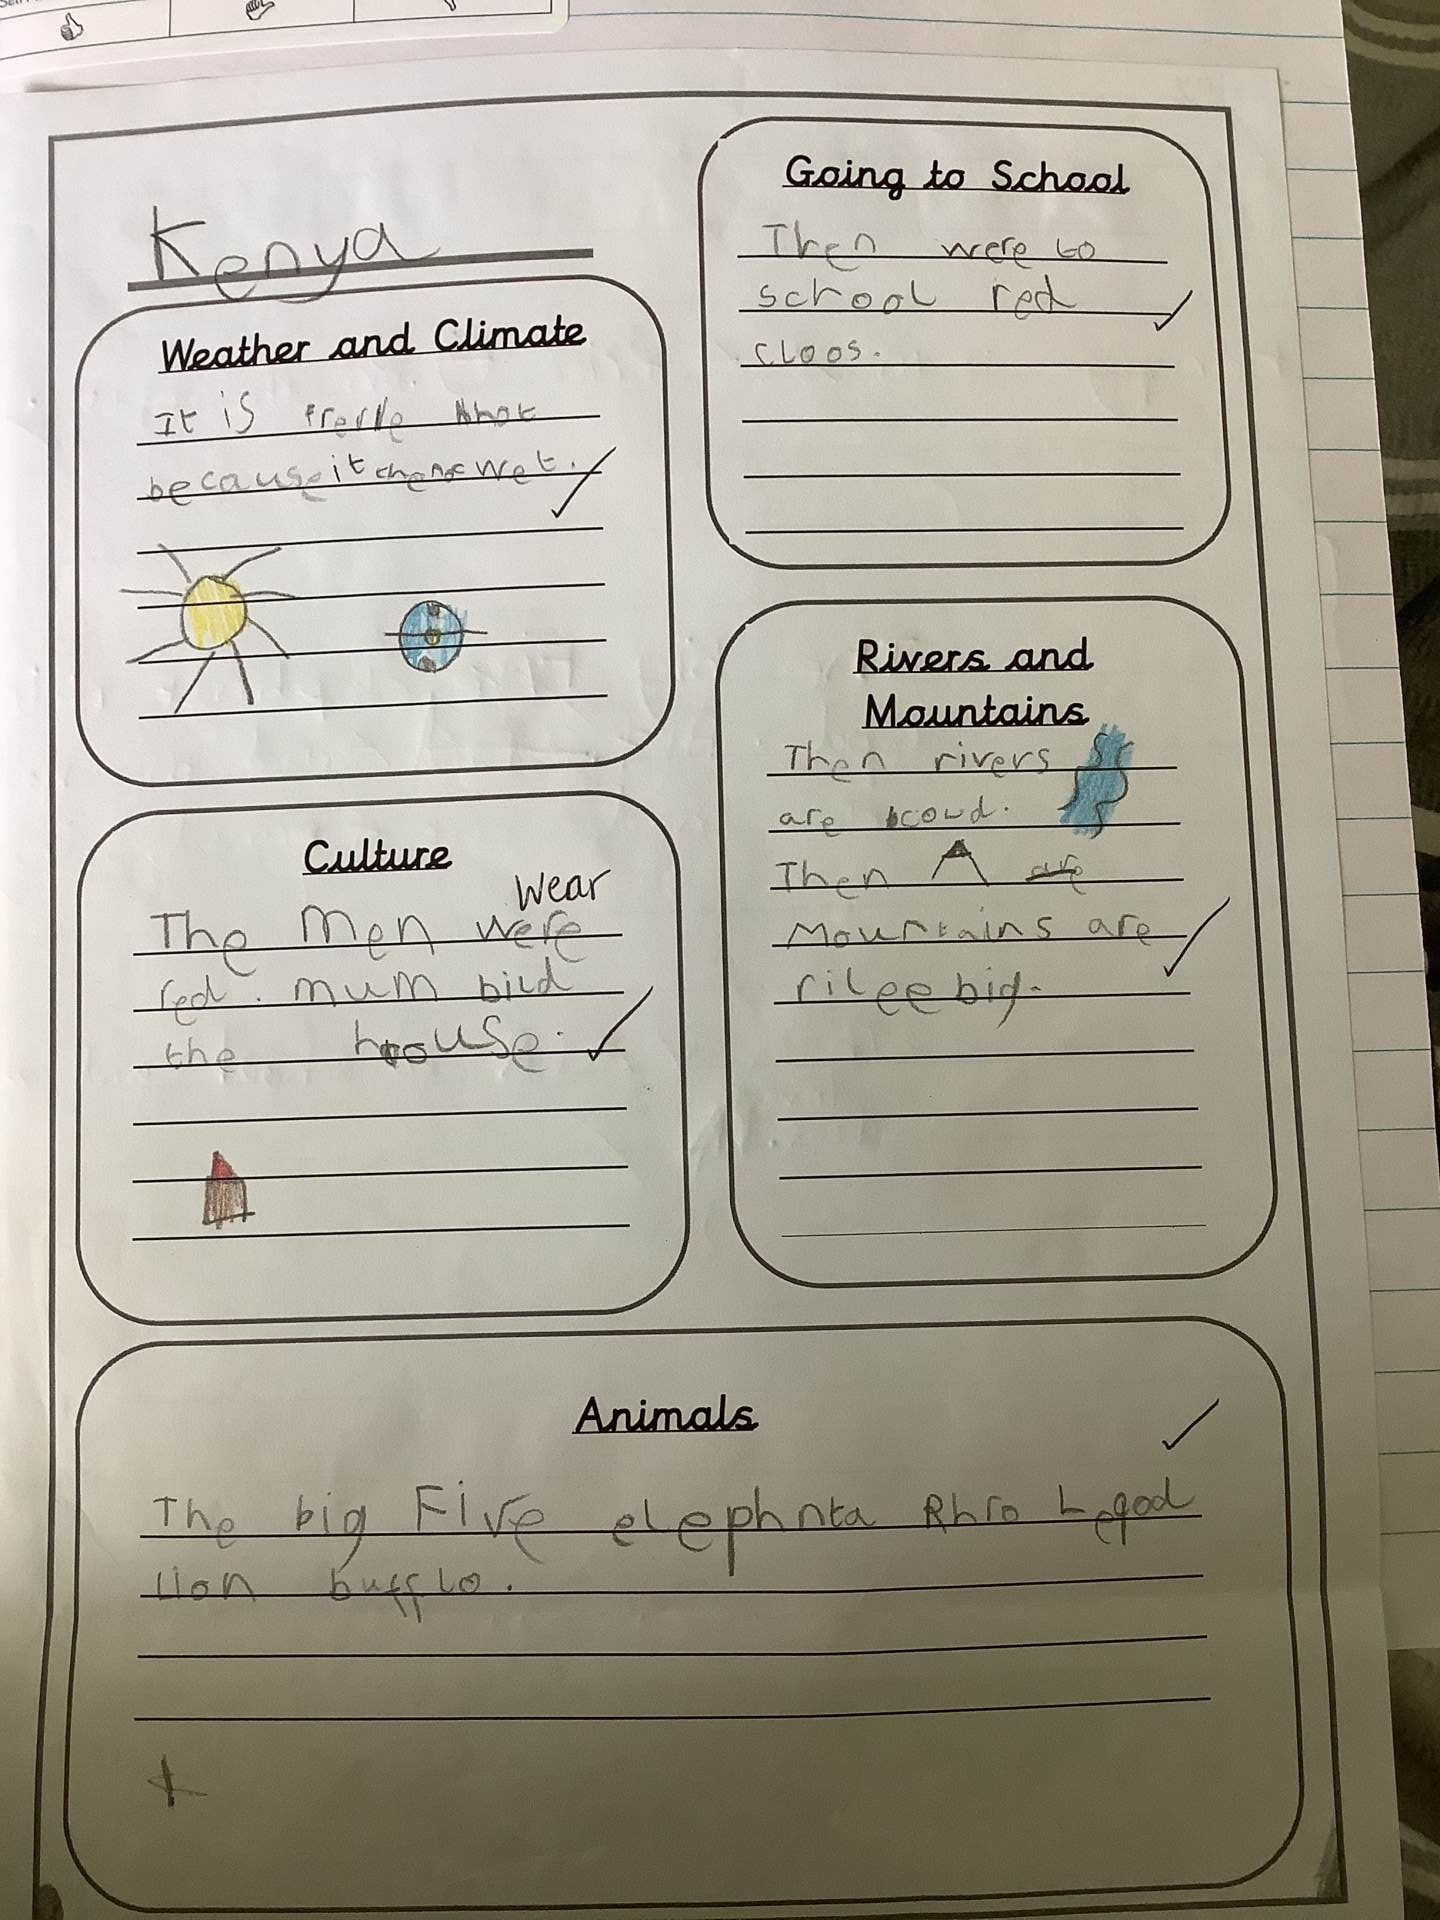 Kenya
Weather and Climate
It is hot
because it wet.
Culture
Wear
The Men were
red. mum bild
the house.
Going to School
Then were to
school red
cloos.
Rivers and
Mountains
Then rivers
are coud.
Then are
Mountains are
rilee big.
Animals
The big Five elephnta Rhro Leqod
lion bufflo.